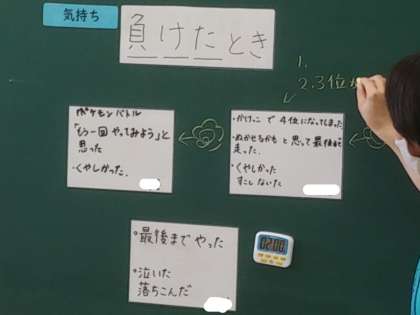 気持ち
負けたとき
1.
2.3位
ポケモンバトル
「もう一回 やってみよう」と
思った
・くやしかった。
・かけっこ で 4位になってしまった
・ぬかせるかも と思って最後まで
走った.
・くやしかった
すこしないた
・最後まで やった
・泣いた
落ちこんだ
02:00